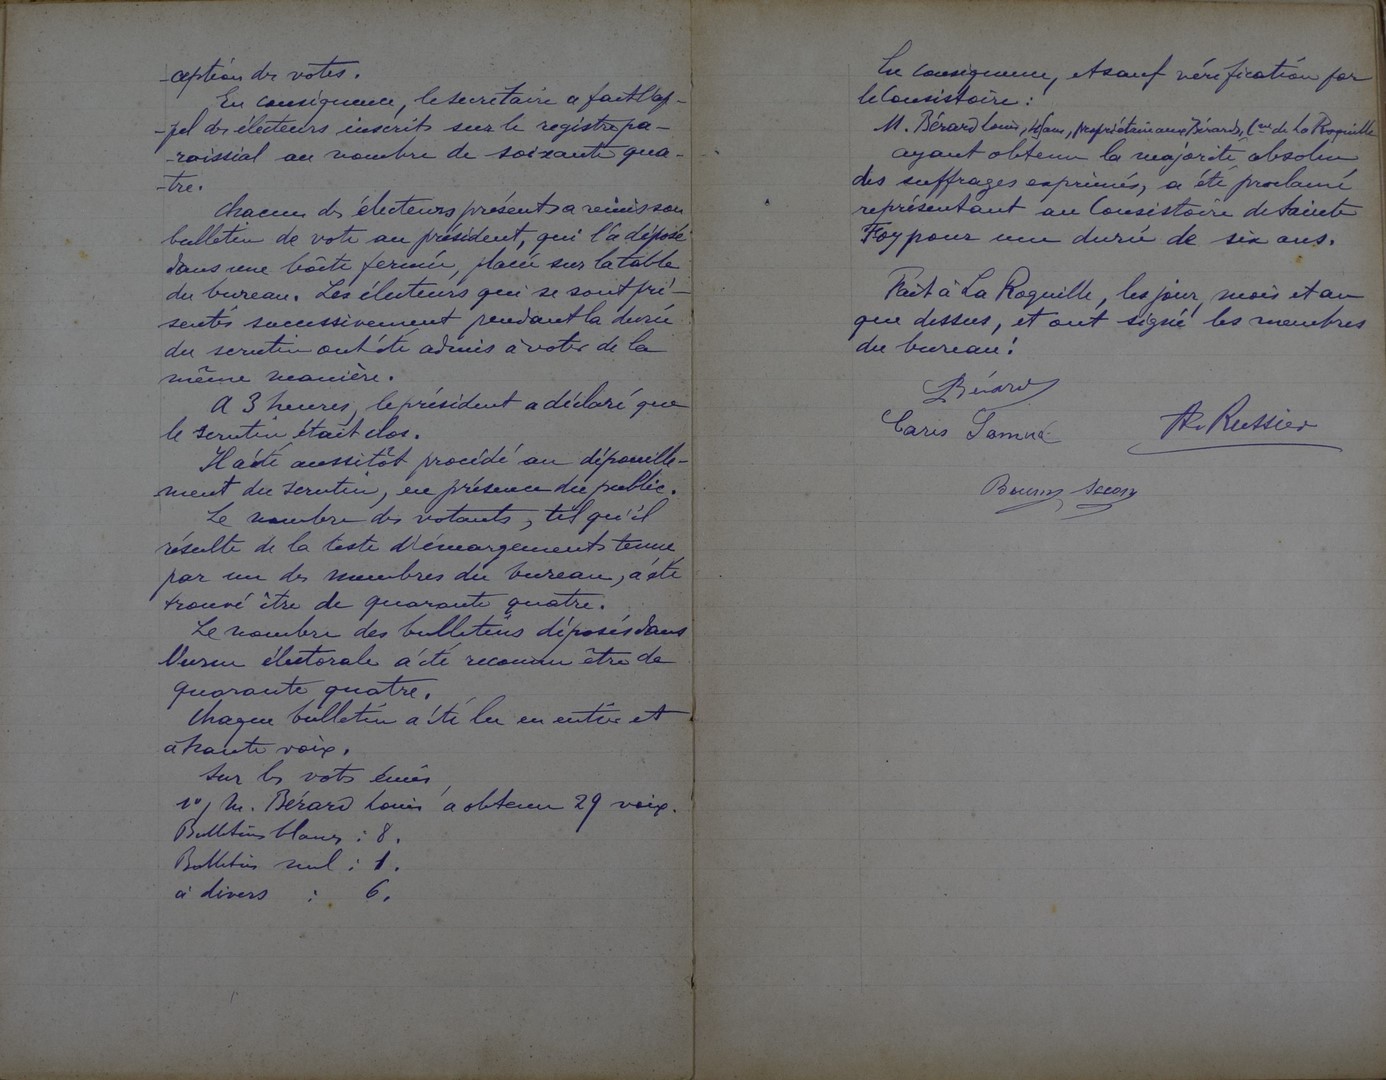 -ception des votes.
En conséquence, le secrétaire a fait l'ap-
-pel des électeurs inscrits sur le registre pa-
-roissial au nombre de soixante qua-
-tre.
Chacun des électeurs présents a remis son
bulletin de vote au président, qui l'a déposé
dans une boîte fermée, placée sur la table
du bureau. Les électeurs qui se sont pré-
sentés successivement pendant la durée
du scrutin ont été admis à voter de la
même manière.
A 3 heures, le président a déclaré que
le scrutin était clos.
Il a été aussitôt procédé au dépouille-
ment du scrutin, en présence du public.
Le nombre des votants, tel qu'il
résulte de la liste d'émargements tenue
par un des membres du bureau, a été
trouvé être de quarante quatre.
Le nombre des bulletins déposés dans
l'urne électorale a été reconnu être de
quarante quatre.
Chaque bulletin a été lu en entier et
à haute voix.
Sur les votes émis
1º/ M. Bérard Louis a obtenu 29 voix.
Bulletins blancs : 8.
Bulletins nul : 1.
à divers : 6.
En conséquence, et sauf vérification par
le Consistoire :
M. Bérard Louis, ans, propriétaire aux Bérards, Cne de La Roquille
ayant obtenu la majorité absolue
des suffrages exprimés, a été proclamé
représentant au Consistoire de Sainte
Foy pour une durée de six ans.
Fait à La Roquille, les jour, mois et an
que dessus, et ont signé les membres
du bureau :
LBérard
Russier